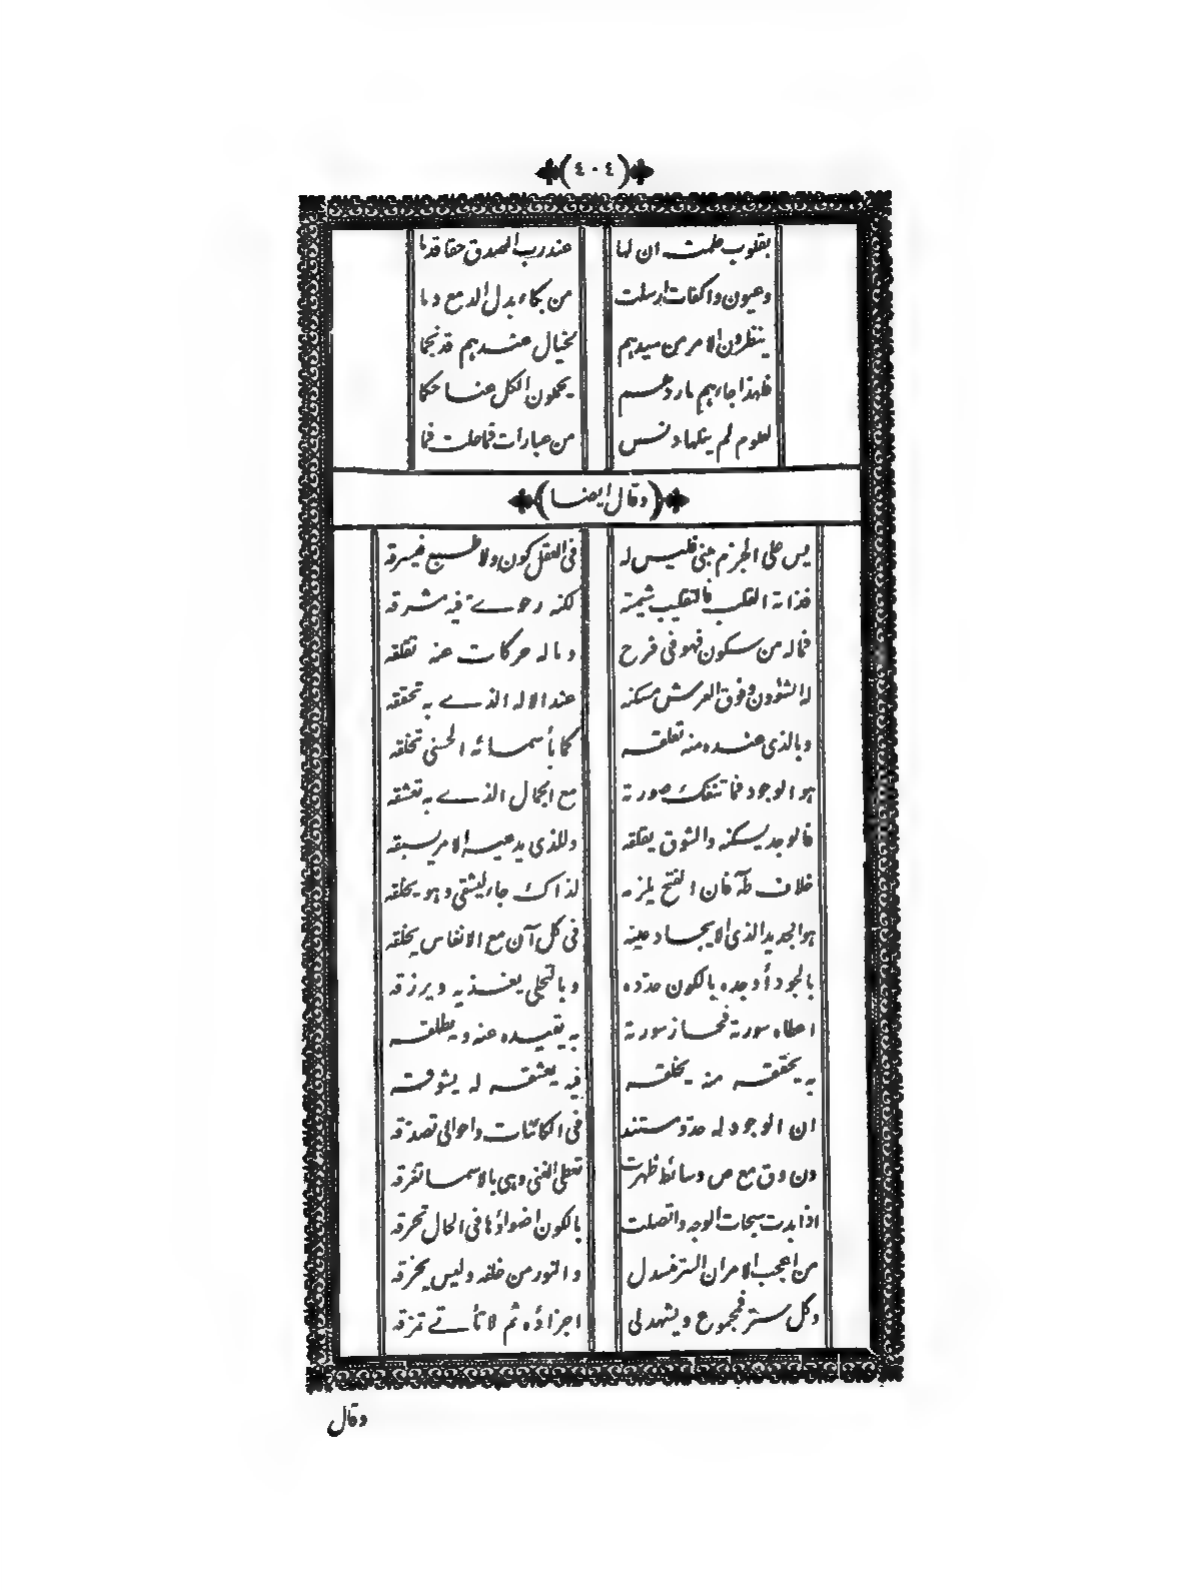 (٤٠٤)
بقلوب علمت ان لها عند رب الصدق حقا قدما
وعيون واكفات ارسلت من بكاء بدل الدمع دما
ينظرون الامر من سيدهم بخيال عندهم قد نجما
فلهذا جاءهم ما ردهم يحملون الكل عنا حكما
لعلوم لم ينلها دنس من عبارات فما حلت فما
(وقال ايضا)
ليس على الجزم مبنى فليس له فى العقل كون ولا طبع فيسرقه
فذاته القلب فالتقليب شيمته لكنه رحوى فيه مشرقه
فماله من سكون فهو فى فرح وماله حركات عنه تقلقه
له الشؤون وفوق العرش مسكنه عند الاله الذى به تحققه
وبالذى عنده منه تعلقه كما بأسمائه الحسنى تخلقه
هو الوجود فما تنفك صورته مع الجمال الذى به تعشقه
فالوجد يسكنه والشوق يقلقه وللذى يدعيه الامر يسبقه
خلاف طه فان الفتح يلزمه لذاك جاء ليشقى وهو يخلقه
هو الجديد الذى الايجاد عينه فى كل آن مع الانفاس يخلقه
بالجود أوجده بالكون حدده وبالتجلى يغذيه ويرزقه
اعطاه سورته فحاز سورته به يقيده عنه ويطلقه
به يحققه منه يخلقه فيه يعشقه له يشوقه
ان الوجود له حد ومستند فى الكائنات واحوالى تصدقه
ن وق مع ص وسائط ظهرت تعطى الغنى وهى بالاسما تفرقه
اذا بدت سبحات الوجه واتصلت بالكون اضواؤها فى الحال تحرقه
من اعجب الامر ان الستر منسدل والنور من خلفه وليس يخرقه
وكل ستر فمجموع ويشهد لى اجزاؤه ثم لا تأتى تمزقه
وقال